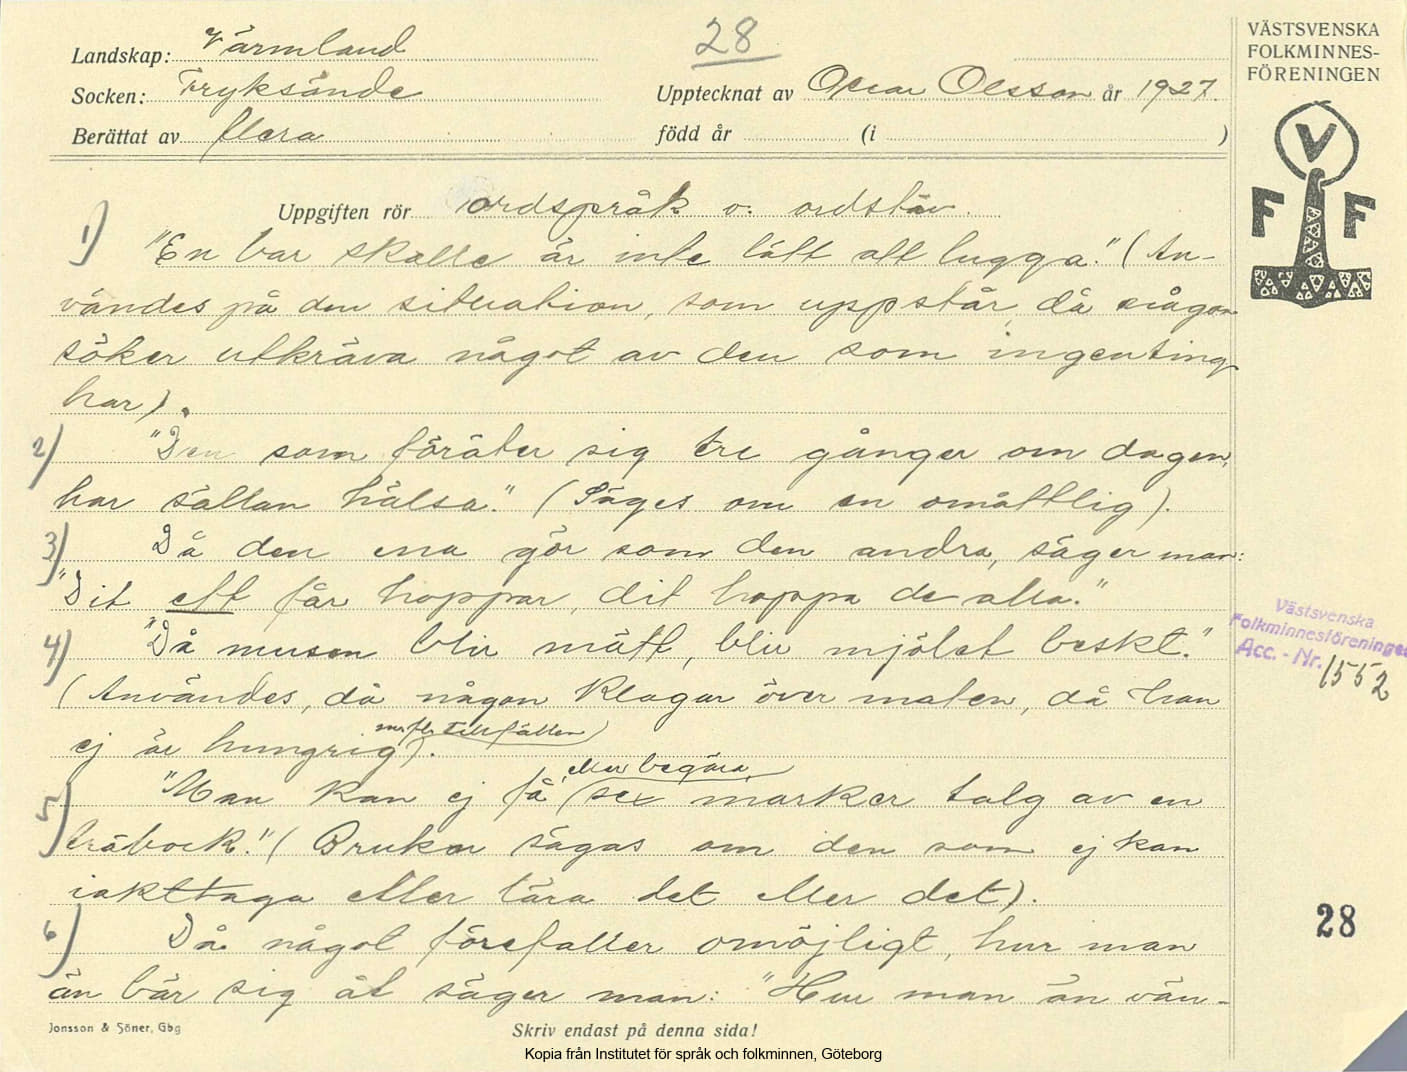 Landskap: Värmland
28
Socken: Fryksände
Upptecknat av Oscar Olsson år 1927.
Berättat av flera
född år (i )
VÄSTSVENSKA
FOLKMINNES-
FÖRENINGEN
V
F F
Uppgiften rör ordspråk o. ordstäv.
1) "En bar skalle är inte lätt att lugga." (An-
vändes på den situation, som uppstår, då någon
söker utkräva något av den som ingenting
har).
2) "Den som föräter sig tre gånger om dagen,
har sällan hälsa." (Säges om en omåttlig).
3) Då den ena gör som den andra, säger man:
"Dit ett får hoppar, dit hoppa de alla."
4) "Då musen blir mätt, blir mjölet beskt."
(Användes, då någon klagar över maten, då han
ej är hungrig m. fl. tillfällen).
5) "Man kan ej få (eller begära) sex marker talg av en
träbock." (Brukar sägas om den som ej kan
iakttaga eller lära det eller det).
6) Då något förefaller omöjligt, hur man
än bär sig åt säger man: "Hur man än vän-
Västsvenska
Folkminnesföreningen
Acc. - Nr. 1552
28
Jonsson & Söner, Gbg
Skriv endast på denna sida!
Kopia från Institutet för språk och folkminnen, Göteborg